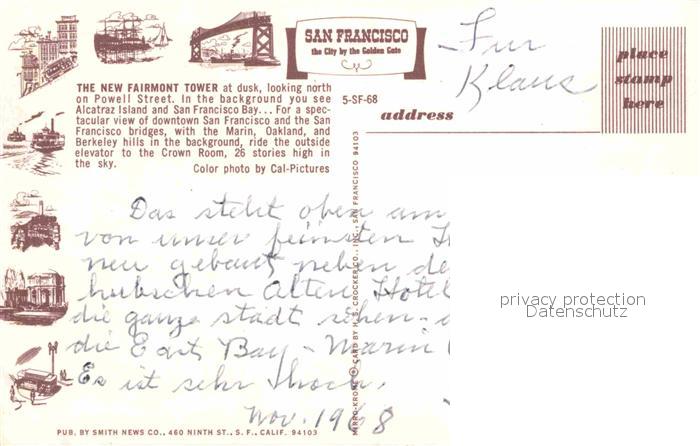 SAN FRANCISCO
the City by the Golden Gate
THE NEW FAIRMONT TOWER at dusk, looking north
on Powell Street. In the background you see
Alcatraz Island and San Francisco Bay... For a spec-
tacular view of downtown San Francisco and the San
Francisco bridges, with the Marin, Oakland, and
Berkeley hills in the background, ride the outside
elevator to the Crown Room, 26 stories high in
the sky.
Color photo by Cal-Pictures
5-SF-68
address
place
stamp
here
Für
Klaus
Das steht oben am
von unser feinsten
neu gebaut neben de
hubschen alten Hotel
die ganze stadt sehen-
die East Bay - Marin
Es ist sehr hoch.
Nov. 1968
MIRRO-KROME ® CARD BY H. S. CROCKER CO., INC., SAN FRANCISCO 94103
PUB. BY SMITH NEWS CO., 460 NINTH ST., S. F., CALIF. 94103
privacy protection
Datenschutz